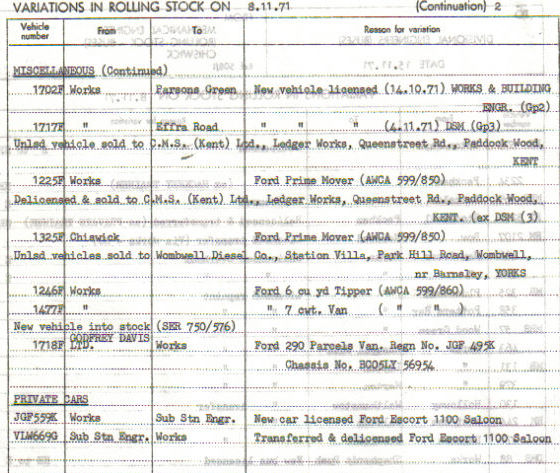 VARIATIONS IN ROLLING STOCK ON 8.11.71 (Continuation) 2
Vehicle number From To Reason for variation
MISCELLANEOUS (Continued)
1702F Works Parsons Green New vehicle licensed (14.10.71) WORKS & BUILDING
ENGR. (Gp2)
1717F " Effra Road " " " (4.11.71) DSM (Gp3)
Unlsd vehicle sold to C.M.S. (Kent) Ltd., Ledger Works, Queenstreet Rd., Paddock Wood,
KENT
1225F Works Ford Prime Mover (AWCA 599/850)
Delicensed & sold to C.M.S. (Kent) Ltd., Ledger Works, Queenstreet Rd., Paddock Wood,
KENT. (ex DSM (3)
1325F Chiswick Ford Prime Mover (AWCA 599/850)
Unlsd vehicles sold to Wombwell Diesel Co., Station Villa, Park Hill Road, Wombwell,
nr Barnsley, YORKS
1246F Works Ford 6 cu yd Tipper (AWCA 599/860)
1477F " " 7 cwt. Van ( " " )
New vehicle into stock (SER 750/576)
1718F GODFREY DAVIS LTD. Works Ford 290 Parcels Van. Regn No. JGF 495K
Chassis No. BC05LY 56954
PRIVATE CARS
JGF559K Works Sub Stn Engr. New car licensed Ford Escort 1100 Saloon
VLW669G Sub Stn Engr. Works Transferred & delicensed Ford Escort 1100 Saloon